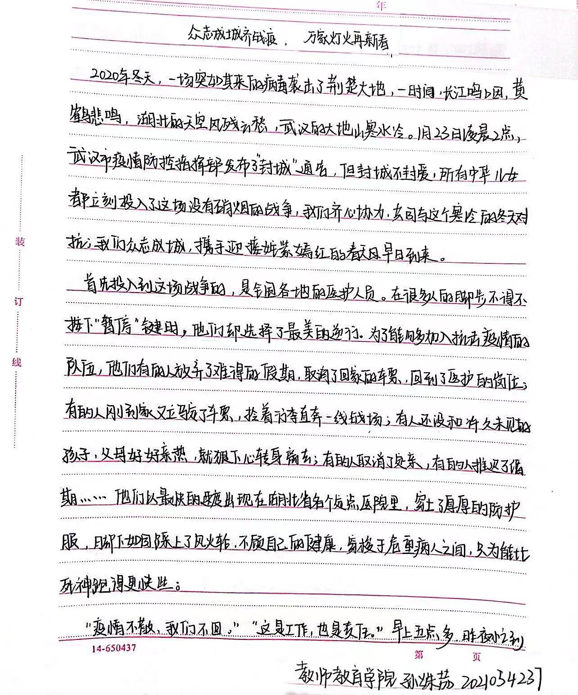 年
众志成城齐战疫，万家灯火再新春
2020年冬天，一场突如其来的病毒袭击了荆楚大地，一时间，长江呜咽，黄
鹤悲鸣，湖北的天空风残云愁，武汉的大地山寒水冷。1月23日凌晨2点，
武汉市疫情防控指挥部发布了"封城"通告，但封城不封爱，所有中华儿女
都立刻投入了这场没有硝烟的战争，我们齐心协力，共同与这个寒冷的冬天对
抗；我们众志成城，携手迎接姹紫嫣红的春天早日到来。
首先投入到这场战争的，是全国各地的医护人员。在很多人的脚步不得不
按下"暂停"键时，他们却选择了最美的逆行。为了能够加入抗击疫情的
队伍，他们有的人放弃了难得的假期，取消了回家的车票，回到了医护的岗位；
有的人刚到家又立马买了车票，拎着行李直奔一线战场；有人还没和许久未见的
孩子，父母好好亲热，就狠下心转身离去；有的人取消了定亲，有的人推迟了婚
期……他们以最快的速度出现在湖北省各个定点医院里，穿上了厚厚的防护
服，脚下如同踩上了风火轮，不顾自己的健康，穿梭于危重病人之间，只为能比
死神跑得更快些；
"疫情不散，我们不回。""这是工作，也是责任。"早上五点多，昨夜忙到
14-650437
第 页
教师教育学院 孙姝 2021034237
装
订
线